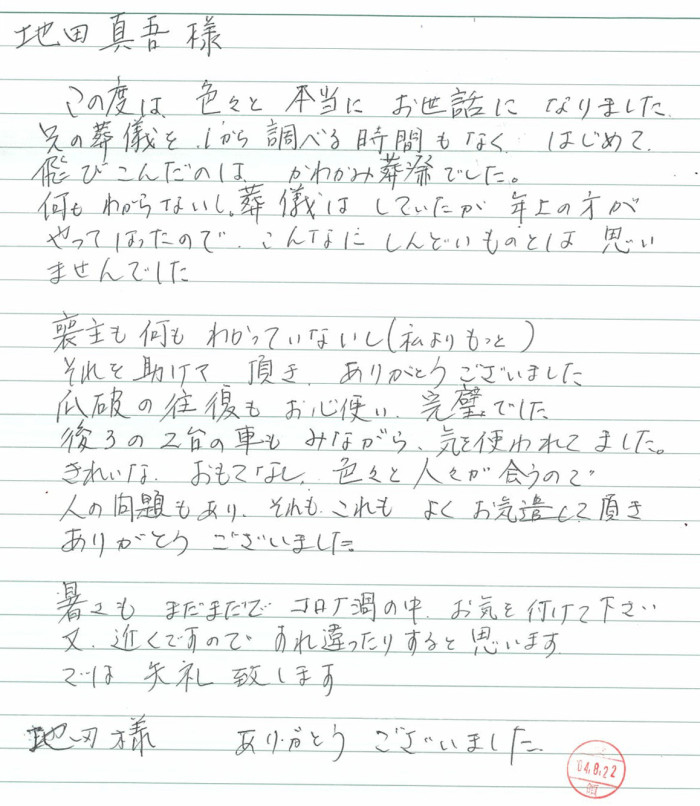 地田真吾様
この度は 色々と 本当に お世話に なりました
兄の葬儀を 1から 調べる時間もなく はじめて
飛びこんだのは かわかみ葬祭でした。
何も わからないし、葬儀は していたが 年上の方が
やってはったので、こんなに しんどいものとは 思い
ませんでした
喪主も 何も わかっていないし(私よりもっと)
それを 助けて 頂き ありがとうございました
瓜破の往復も お心使い、完璧でした
後ろの2台の車も みながら、気を使われてました。
きれいな おもてなし、色々と人々が会うので
人の問題もあり、それも これも よく お気遣して頂き
ありがとう ございました
暑さも まだまだで コロナ渦の中、お気を付けて下さい
又、近くですので すれ違ったりすると 思います
では 失礼 致します
地田様 ありがとう ございました
04.8.22